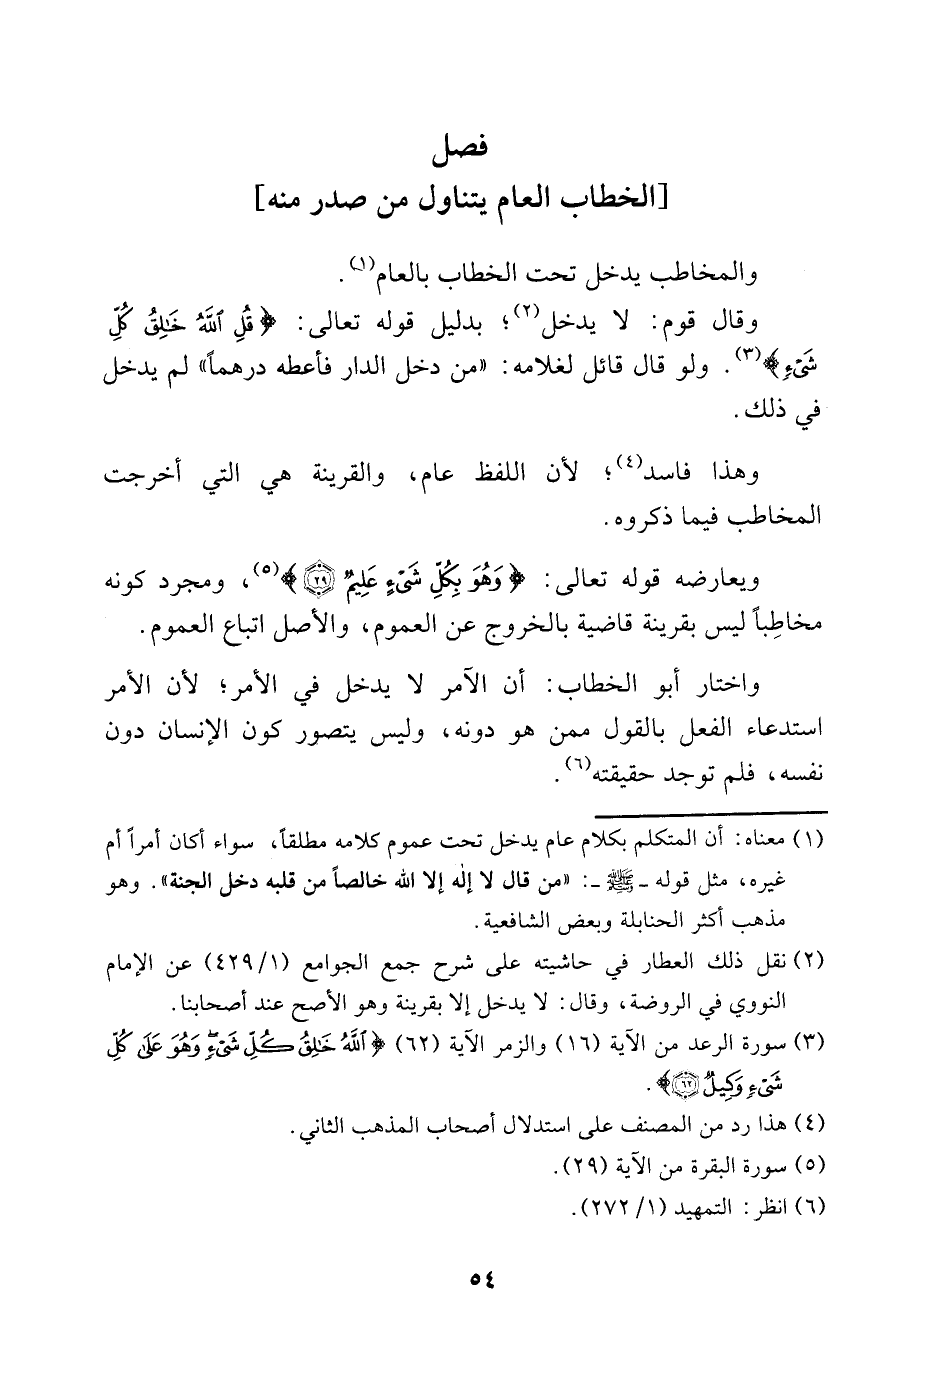 فصل
[الخطاب العام يتناول من صدر منه]
والمخاطب يدخل تحت الخطاب بالعام(١).
وقال قوم: لا يدخل(٢)؛ بدليل قوله تعالى: ﴿قُلِ ٱللَّهُ خَٰلِقُ كُلِّ
شَىْءٍ﴾(٣). ولو قال قائل لغلامه: «من دخل الدار فأعطه درهماً» لم يدخل
في ذلك.
وهذا فاسد(٤)؛ لأن اللفظ عام، والقرينة هي التي أخرجت
المخاطب فيما ذكروه.
ويعارضه قوله تعالى: ﴿وَهُوَ بِكُلِّ شَىْءٍ عَلِيمٌ ٢٩﴾(٥)، ومجرد كونه
مخاطِباً ليس بقرينة قاضية بالخروج عن العموم، والأصل اتباع العموم.
واختار أبو الخطاب: أن الآمر لا يدخل في الأمر؛ لأن الأمر
استدعاء الفعل بالقول ممن هو دونه، وليس يتصور كون الإنسان دون
نفسه، فلم توجد حقيقته(٦).
(١) معناه: أن المتكلم بكلام عام يدخل تحت عموم كلامه مطلقاً، سواء أكان أمراً أم
غيره، مثل قوله - ﷺ -: «من قال لا إلٰه إلا الله خالصاً من قلبه دخل الجنة». وهو
مذهب أكثر الحنابلة وبعض الشافعية.
(٢) نقل ذلك العطار في حاشيته على شرح جمع الجوامع (١/ ٤٢٩) عن الإمام
النووي في الروضة، وقال: لا يدخل إلا بقرينة وهو الأصح عند أصحابنا.
(٣) سورة الرعد من الآية (١٦) والزمر الآية (٦٢) ﴿ٱللَّهُ خَٰلِقُ كُلِّ شَىْءٍ وَهُوَ عَلَىٰ كُلِّ
شَىْءٍ وَكِيلٌ ٦٢﴾.
(٤) هذا رد من المصنف على استدلال أصحاب المذهب الثاني.
(٥) سورة البقرة من الآية (٢٩).
(٦) انظر: التمهيد (١/ ٢٧٢).
٥٤